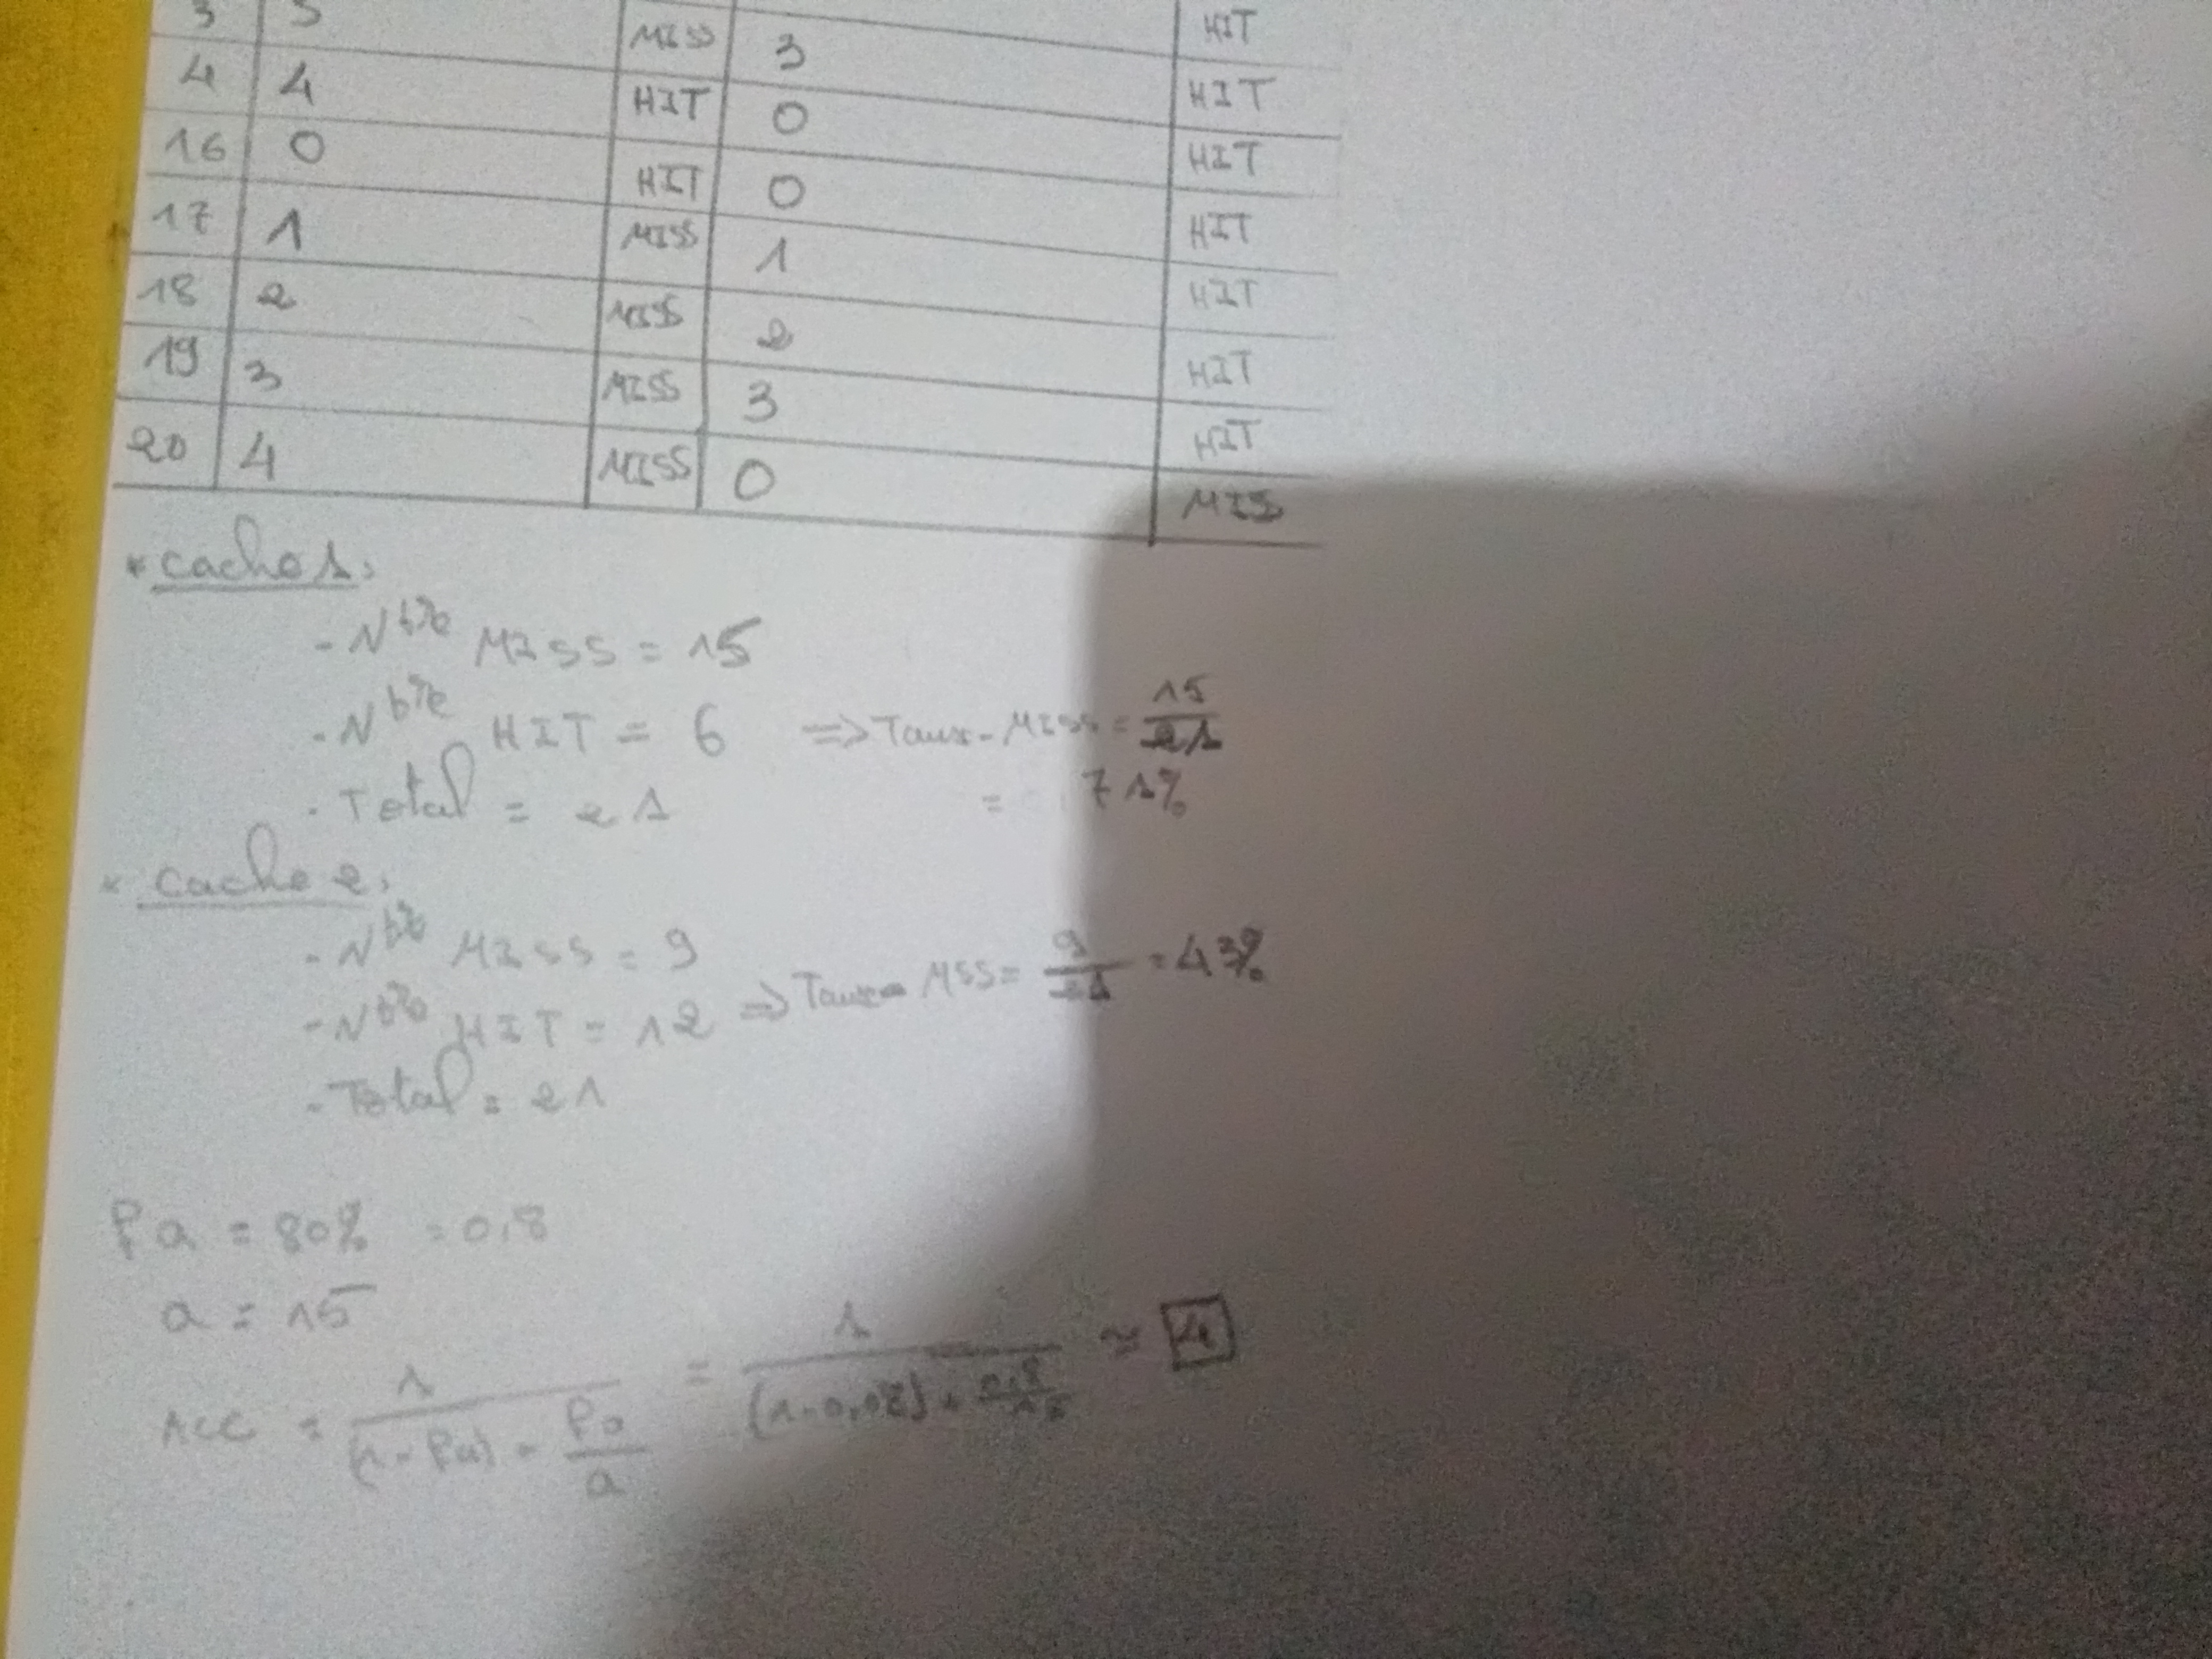 3 3 MISS 3 HIT
4 4 HIT 0 HIT
16 0 HIT 0 HIT
17 1 MISS 1 HIT
18 2 MISS 2 HIT
19 3 MISS 3 HIT
20 4 MISS 0 HIT
MISS
* cache 1:
- Nbre MISS = 15
- Nbre HIT = 6 => Taux-MISS = 15/21
- Total = 21 = 71%
* cache 2:
- Nbre MISS = 9
- Nbre HIT = 12 => Taux-MSS = 9/21 = 43%
- Total = 21
Pa = 80% = 0,8
a = 15
Acc = 1/((1-Pa) + Pa/a) = 1/((1-0,08) + 0,8/15) ≈ 4